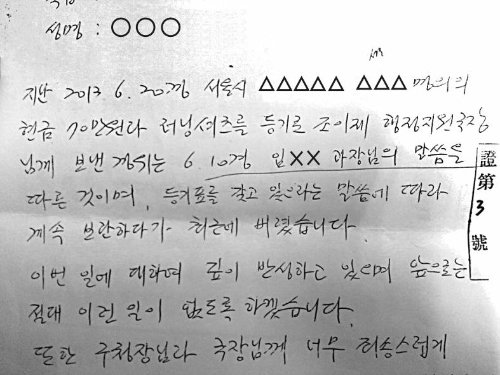 성명 : ○○○
지난 2013 6. 20경 서울시 △△△△△ △△△ 명의의
현금 70만원과 러닝셔츠를 등기로 조이제 행정지원국장
님께 보낸 경위는 6.10경 임×× 과장님의 말씀을
따른 것이며, 등기표를 갖고 있으라는 말씀에 따라
계속 보관하다가 최근에 버렸습니다.
이번 일에 대하여 깊이 반성하고 있으며 앞으로는
절대 이런 일이 없도록 하겠습니다.
또한 구청장님과 국장님께 너무 죄송스럽게
證第3號